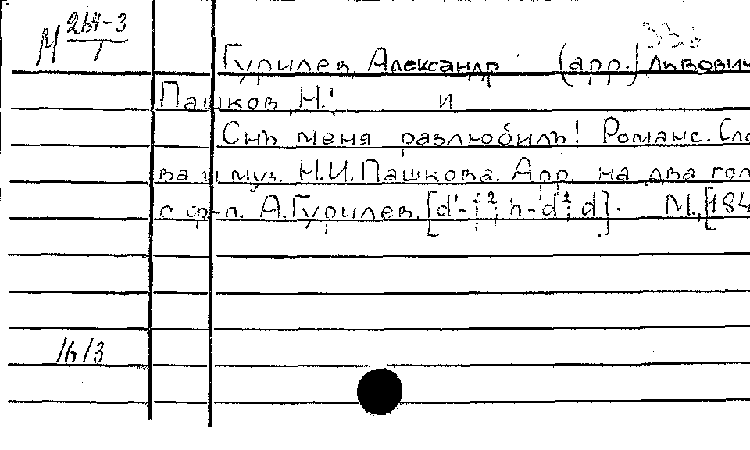 М 264-3
1
Гурилев, Александр (арр.) Львович
Пашков, Н.! и
Онъ меня разлюбилъ! Романс. Сло
ва и муз. Н.И. Пашкова. Арр. на два гол
с ф-п. А. Гурилев. [d'-f²; h-d²; d]. М., [184